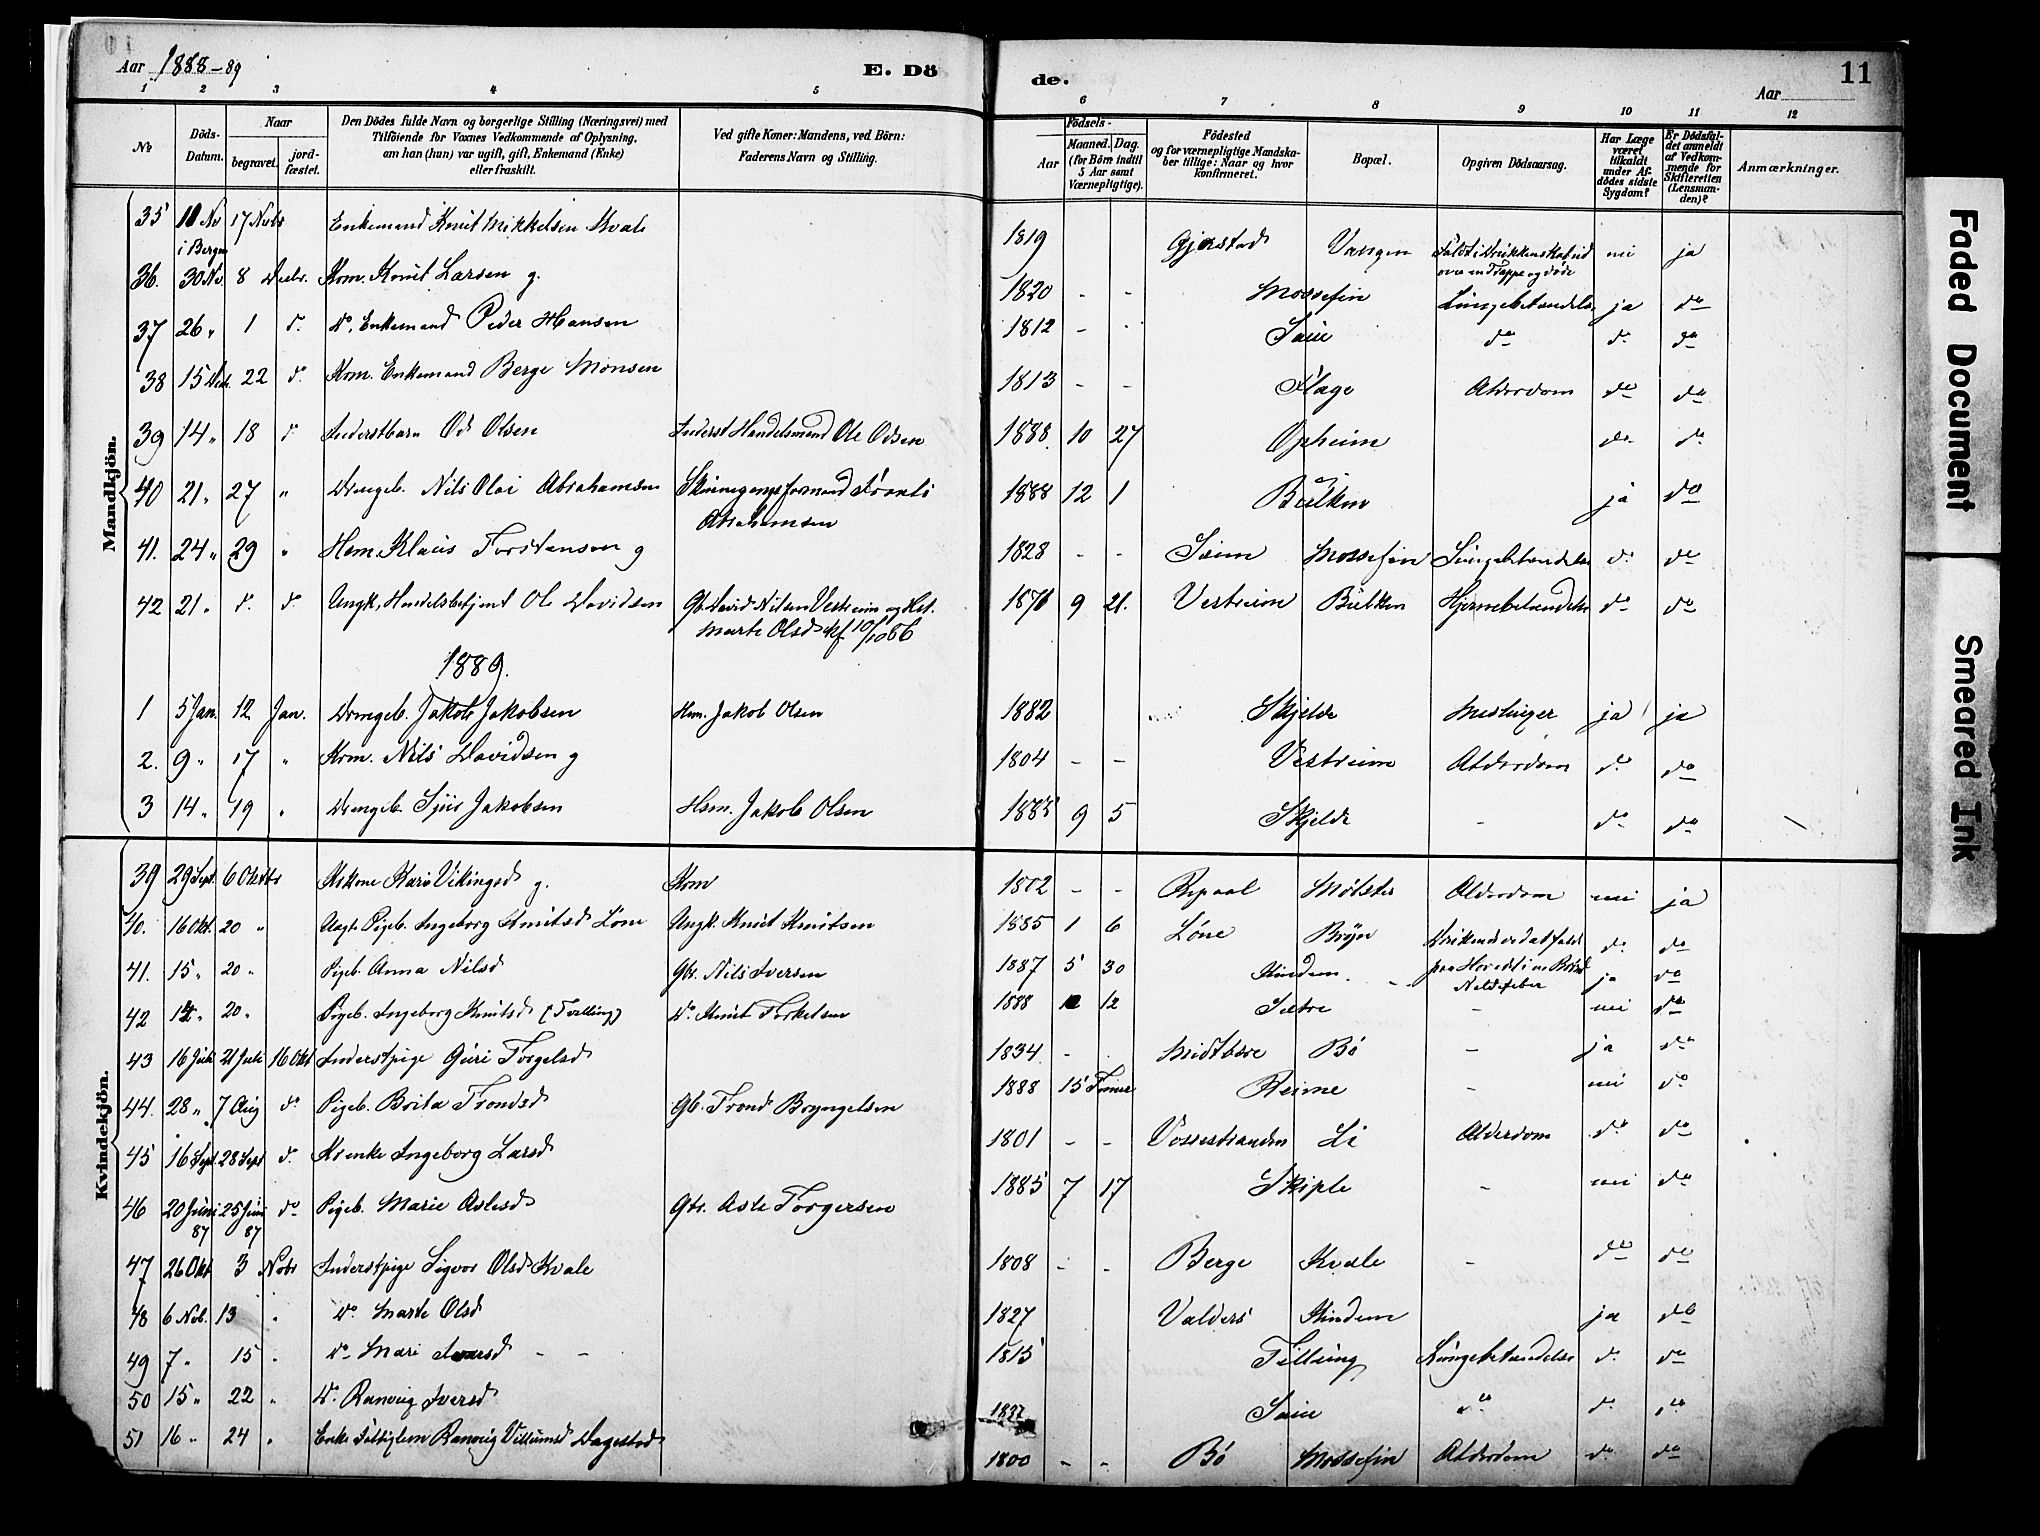 Aar 1888-89
E. Döde.
11
Aar
1 2 3 4 5 6 7 8 9 10 11 12
No
Döds-Datum.
Naar
begravet.
jord-fæstet.
Den Dödes fulde Navn og borgerlige Stilling (Næringsvei) med
Tilföiende for Voxnes Vedkommende af Oplysning,
om han (hun) var ugift, gift, Enkemand (Enke)
eller fraskilt.
Ved gifte Koner: Mandens, ved Börn:
Faderens Navn og Stilling.
Födsels-
Aar
Maaned. Dag.
(for Börn indtil
5 Aar samt
Værnepligtige).
Födested
og for værnepligtige Mandska-
ber tillige: Naar og hvor
konfirmeret.
Bopæl.
Opgiven Dödsaarsag.
Har Læge
været
tilkaldt
under Af-
dödes sidste
Sygdom?
Er Dödsfal-
det anmeldt
af Vedkom-
mende for
Skifteretten
(Lensman-
den)?
Anmærkninger.
Mandkjön.
35 11 Nv i Bergen 17 Novbr Enkemand Knut Mikkelsen Kvale 1819 Gjerstad Vangen nei ja
36. 30 Nv. 8 Decbr. Kom. Knut Larsen g. 1820 - - Mossefin Lungebetændelse ja do
37 26 " 1 d. Do. Enkemand Peder Hansen 1812 - - do d. do
38 15 Dec. 22 d. Kom. Enkemand Berge Monsen 1813 - - Flage Alderdom do do
39 14 " 18 d Inderstbarn Od Olsen Inderst Handelsmand Ole Odsen 1888. 10 27 Opheim do do
40 21 " 27 " Drengeb. Nils Olai Abrahamsen Abrahamsen 1888 12 1 Bulken ja do
41. 24 " 29 " Hsm. Klaus Torstensen g 1828 - - Seim Mossefin Lungebetændelse do do
42 21 " d. d. Ungk. Handelsbetjent Ole Davidsen Gb. David Nilsen Vestreim og Hst. Marte Olsd. kf 10/10 86 1871 9 21. Vestreim Bulken Hjernebetændelse do do
1889.
1 5 Jan. 12 Jan. Drengeb. Jakob Jakobsen Hsm. Jakob Olsen 1882 Skjelde Meslinger ja ja
2. 9 " 17 " Kom. Nils Davidsen g 1804 - - Vestreim Alderdom do do
3 14 " 19 " Drengeb. Sjur Jakobsen Hsm. Jakob Olsen 1885 9 5 Skjelde - do do
Kvindekjön.
39 29 Sept. 6 Oktobr Kskone Kari Vikingsd g. Kom 1802 - - Repaal Mølster Alderdom nei ja
40. 16 Okt. 20 " Uegt. Pigeb. Ingeborg Knutsd Lone Ungk. Knut Knutsen 1885 1 6 Løne Bryn do do
41. 15 " 20 " Pigeb. Anna Nilsd Gbr. Nils Iversen 1887 5 30 Kindem Neldefeber ja do
42 14 " 20 " Pigeb. Ingeborg Knutsd (Tvilling) Do. Knut Torkelsen 1888 12 Sætre - nei do
43 16 Juli 21 Juli 16 Okt Inderstpige Guri Torgelsd 1834 - - Midtbøre Bø - ja do
44. 28 " 7 Aug do Pigeb. Brita Trondsd Gb. Trond Bryngelsen 1888 15 Timer Reime - nei do
45 16 Sept. 28 Sept d. Kdenke Ingeborg Larsd 1801 - - Vossestranden Li Alderdom do do
46 20 Juni 87 25 Juni 87 do Pigeb. Marie Aslesd Gbr. Asle Torgersen 1885 7 17 Skiple - nei do
47 26 Okt 3 Nobr Inderstpige Sigvor Olsd Kvale 1808 - - Berge Kvale - do do
48 6 Nob. 13 " Do. Marte Olsd 1827 Valders Kindem ja do
49 7 " 15 " Do. Mari Ivarsd - - 1815 Tillung Lungebetændelse do do
50 15 " 22 " Do. Ranveig Iversd 1827 do do do
51 16 " 24 " Enke Ranveig Villumsd Dagestad 1800 - - Bø Mossefin Alderdom do do
Faded Document
Smeared Ink